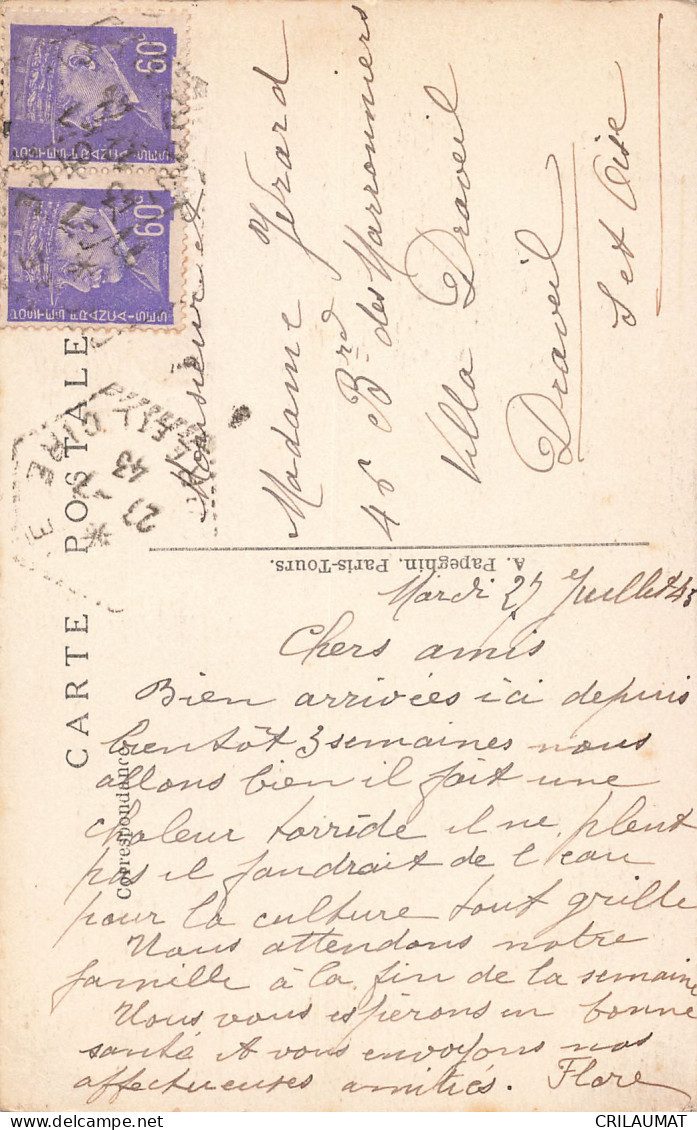 CARTE POSTALE
Correspondance
A. Papeghin, Paris-Tours.
60
POSTES FRANÇAISES
60
POSTES FRANÇAISES
Monsieur et
Madame Gérard
46 Brd des Marronniers
Villa Draveil
Draveil
S et Oise
Mardi 27 Juillet 43
Chers amis
Bien arrivées ici depuis
bientôt 3 semaines nous
allons bien il fait une
chaleur torride il ne pleut
pas il faudrait de l'eau
pour la culture tout grille
Nous attendons notre
famille à la fin de la semaine
Nous vous espérons en bonne
santé et vous envoyons nos
affectueuses amitiés. Flore
CRILAUMAT